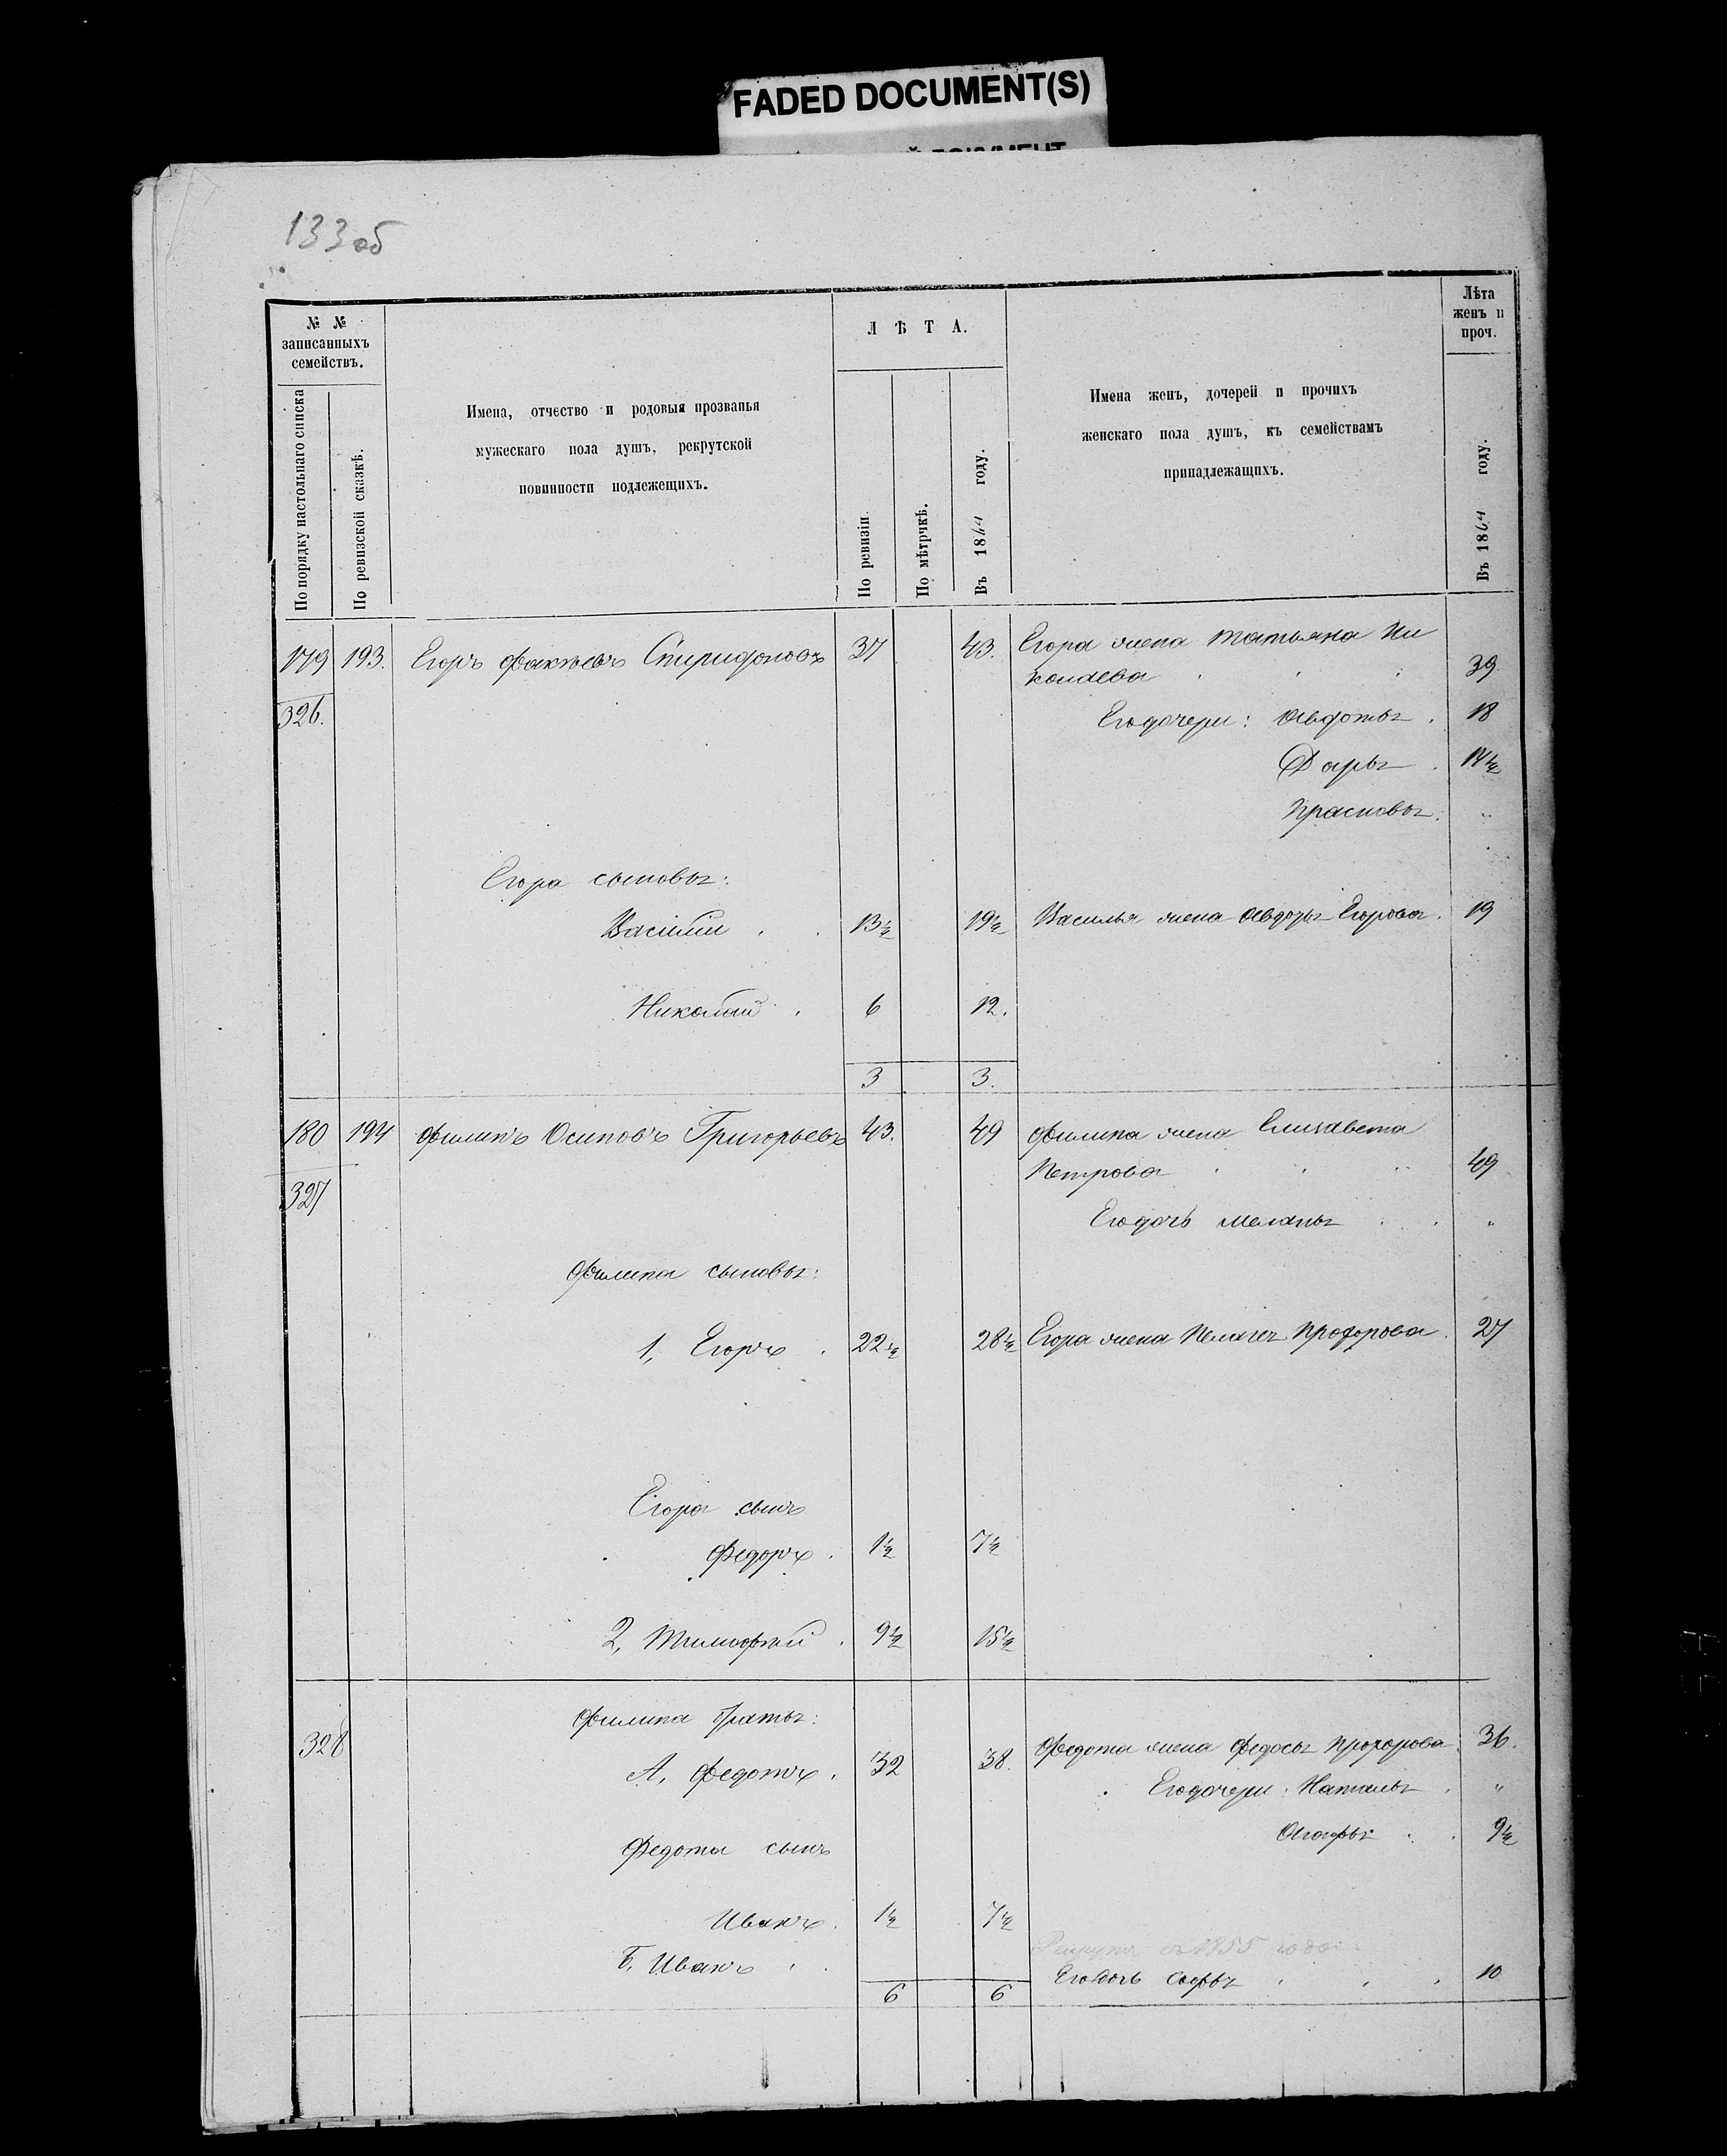 FADED DOCUMENT(S)
133 об
№ № записанныхъ семействъ.
По порядку настольнаго списка
По ревизской сказкѣ.
Имена, отчество и родовыя прозванья
мужескаго пола душъ, рекрутской
повинности подлежещихъ.
ЛѢТА.
По ревизіи.
По мѣтрчкѣ.
Въ 1864 году.
Имена женъ, дочерей и прочихъ
женскаго пола душъ, къ семействамъ
принадлежащихъ.
Лѣта женъ и проч.
Въ 1864 году.
179 193. Егоръ Фактевъ Спиридоновъ 37 43. Егора жена Татьяна Ни
колаева 39
326. Его дочери: Авдотья 18
Дарья 14½
Прасковья "
Егора сыновья:
Василий 13½ 19½ Василья жена Авдотья Егорова 19
Николай 6 12.
3 3.
180 194 Филипъ Осиповъ Григорьевъ 43. 49 Филипа жена Елизавета
Петрова 49
327 Его дочь Меланья "
Филипа сыновья:
1, Егоръ 22½ 28½ Егора жена Пелагея Прохорова 27
Егора сынъ
Федоръ 1½ 7½
2, Тимофей 9½ 15½
Филипа братья:
328 А, Федотъ 32 38. Федота жена Федосья Прохорова 36.
Его дочери: Наталья "
Агафья 9½
Федота сынъ
Иванъ 1½ 7½
Рекрутъ съ 1855 года
Б, Иванъ Его дочь Софья 10
6 6